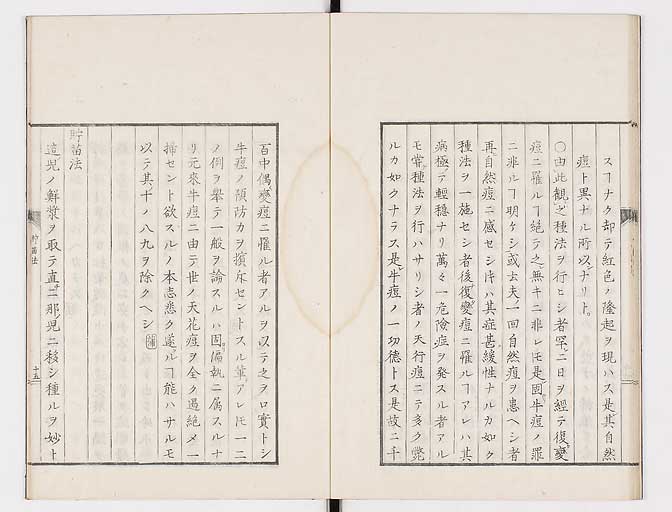 スヿナク却テ紅色ノ隆起ヲ現ハス是其自然
痘ト異ナル所以ナリト。
〇由此観之種法ヲ行ヒシ者罕ニ日ヲ經テ復變
痘ニ罹ルヿ絕テ之無キニ非レ𪜈是固牛痘ノ罪
ニ非ルヿ明ケシ或云夫一回自然痘ヲ患ヘシ者
再自然痘ニ感セシ𪜈ハ其症甚緩性ナルカ如ク
種法ヲ一施セシ者後復變痘ニ罹ルヿアレハ其
病極テ輕穩ナリ萬々一危險症ヲ発スル者アル
モ常種法ヲ行ハサリシ者ノ天行痘ニテ多ク斃
ルカ如クナラス是牛痘ノ一功德トス是故ニ千
百中偶變痘ニ罹ル者アルヲ以テ之ヲ口實トシ
牛痘ノ預防カヲ擯斥セントスル輩アレ𪜈一二
ノ例ヲ擧テ一般ヲ論スルハ固偏執ニ属スルナ
リ元來牛痘ニ由テ世ノ天花痘ヲ全ク遏絕メ一
掃セント欲スルノ本志悉ク遂ルヿ能ハサルモ
以テ其十ノ八九ヲ除クヘシ
貯苗法
這児ノ鮮漿ヲ取テ直ニ那児ニ移シ種ルヲ妙ト
貯苗法
十五